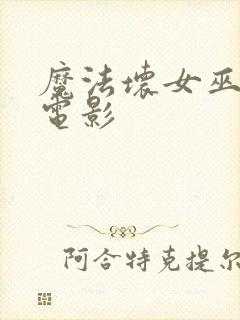 魔法壞女巫
電影
阿合特克提尔